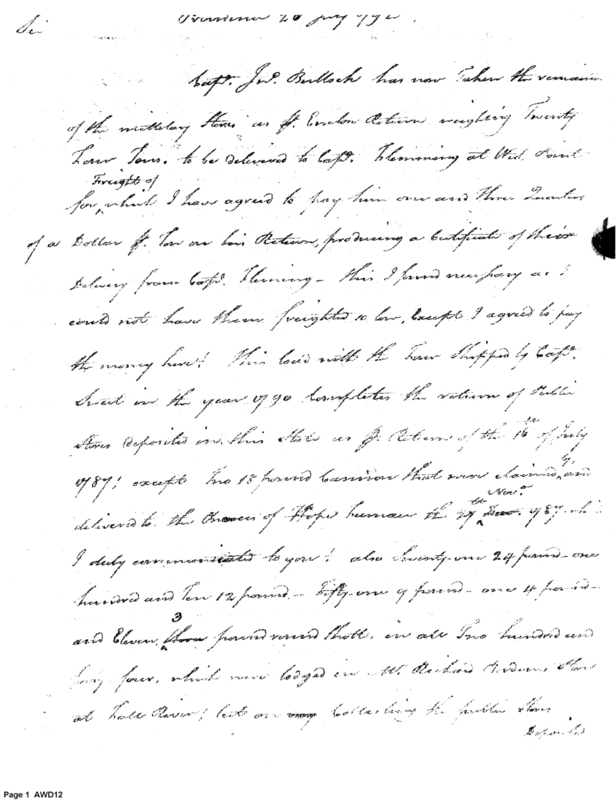 Sir
Providence 20 July 1792
Capt. Jno. Bullock has now Taken the remain
of the millitary Stores as pr. Enclos Return weighing Twenty
Four Tons. to be delivered to Capt. Flemming at West Point
Freight of
for which I have agreed to pay him one and three Quarters
of a Dollar pr. Ton on his Return, producing a Certificate of their
Delivery from Capt. Fleming - this I found necessary as I
could not have them freighted so low, Except I agreed to pay
the money here! This load with the Four Shipped by Capt.
in the year 1790 Compleates the return of Public
Stores deposited in this State as pr. Return of the 16th of July
1787! except Two 18 pound Cannon that were claimed by, and
delivered to the Owners of Hope furnace the 27th Novr. 1787
I duly communicated to you! also Seventy-one 24 pound - one
hundred and Ten 12 pound - Fifty-one 9 pound - one 4 pound -
3
and Eleven three pound round Shott, in all Two hundred and
forty four, which were lodged in Mr. Richard Store
at Fall River! but on Collecting the public Stores
deposited
Page 1 AWD12